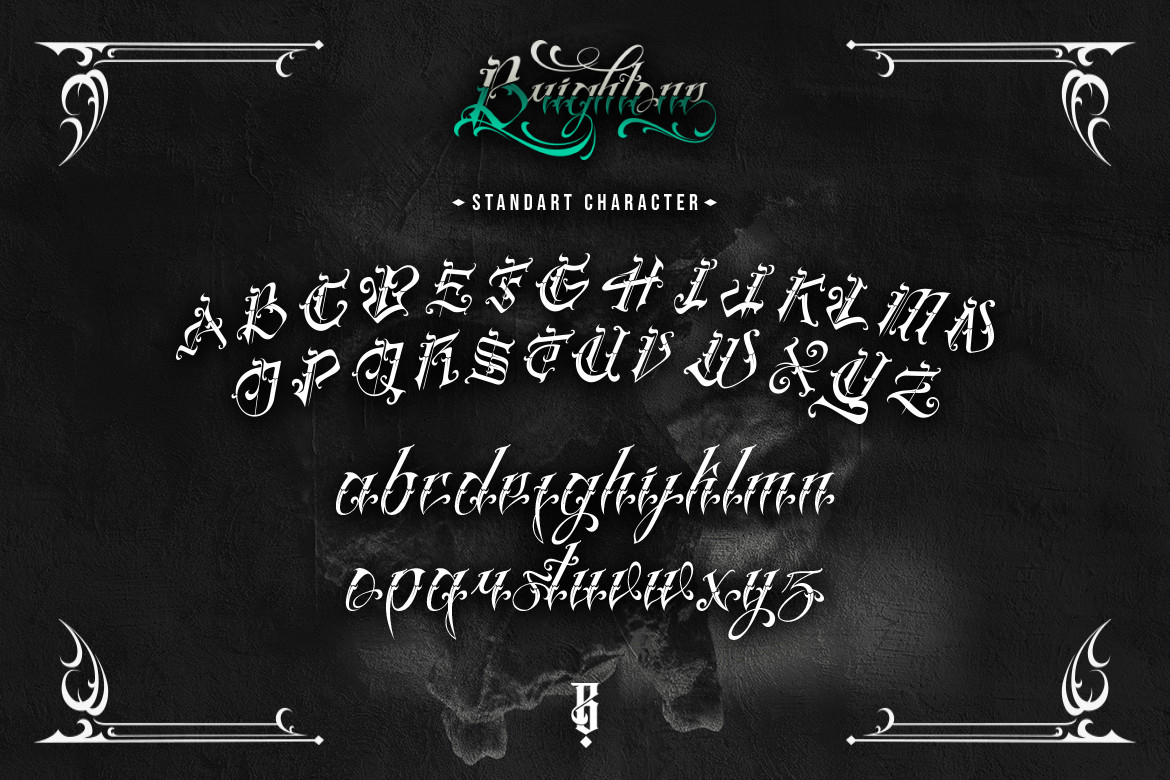 Brightonn
STANDART CHARACTER
A B C D E F G H I J K L M N
O P Q R S T U V W X Y Z
abcdefghijklmn
opqrstuvwxyz
B